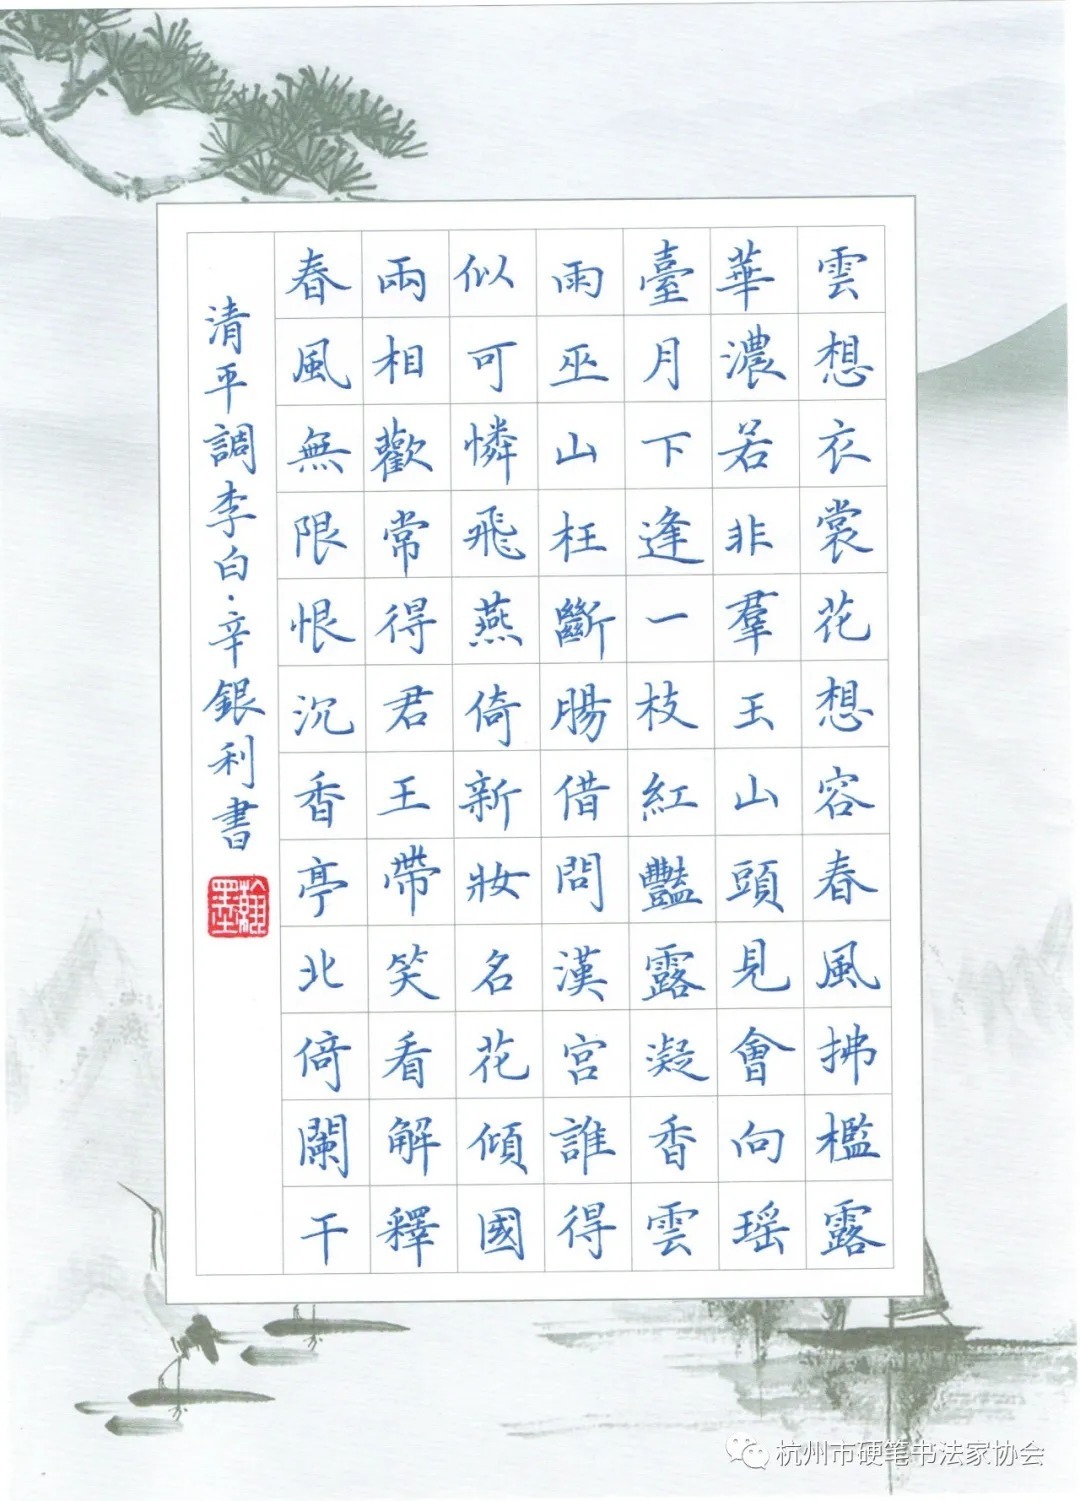 雲想衣裳花想容春風拂檻露
華濃若非羣玉山頭見會向瑶
臺月下逢一枝紅豔露凝香雲
雨巫山枉斷腸借問漢宮誰得
似可憐飛燕倚新妝名花傾國
兩相歡常得君王帶笑看解釋
春風無限恨沉香亭北倚闌干
清平調李白·辛銀利書
翰墨
杭州市硬笔书法家协会